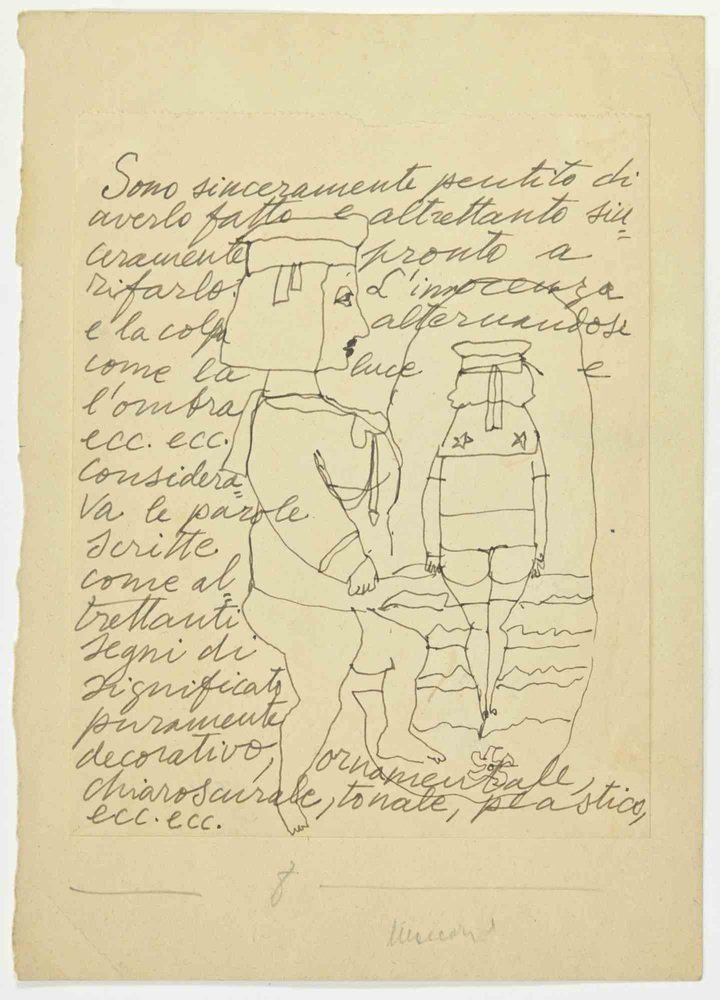 Sono sinceramente pentito di
averlo fatto e altrettanto sin=
ceramente pronto a
rifarlo. L'innocenza
e la colpa alternandosi
come la luce e
l'ombra
ecc. ecc.
Considera=
va le parole
scritte
come al=
trettanti
segni di
significato
puramente
decorativo, ornamentale,
chiaroscurale, tonale, plastico,
ecc. ecc.
8